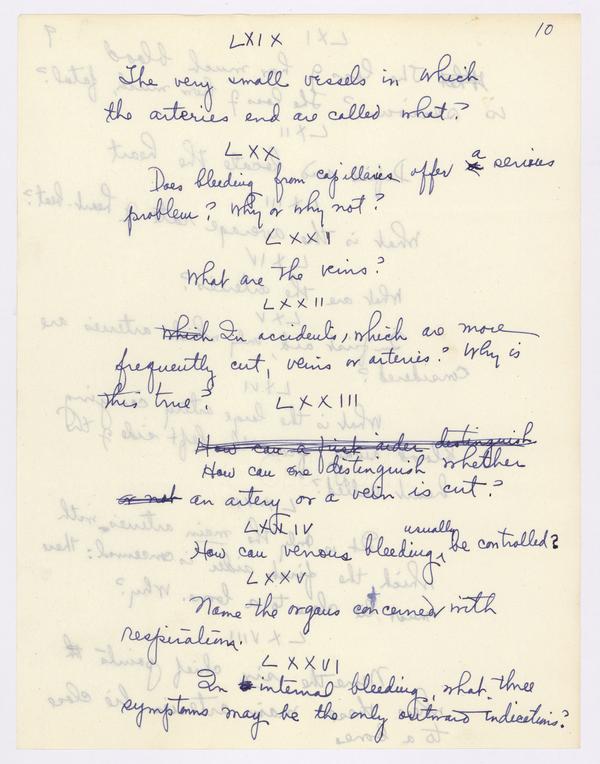 10
LXIX
The very small vessels in which
the arteries end are called what?
LXX
Does bleeding from capillaries offer a serious
problem? Why or why not?
LXXI
What are the veins?
LXXII
Which In accidents, which are more
frequently cut, veins or arteries? Why is
this true?
LXXIII
How can a first aider distinguish
How can one distinguish whether
or not an artery or a vein is cut?
LXXIV
How can venous bleeding usually be controlled?
LXXV
Name the organs concerned with
respiration.
LXXVI
In internal bleeding, what three
symptoms may be the only outward indications?